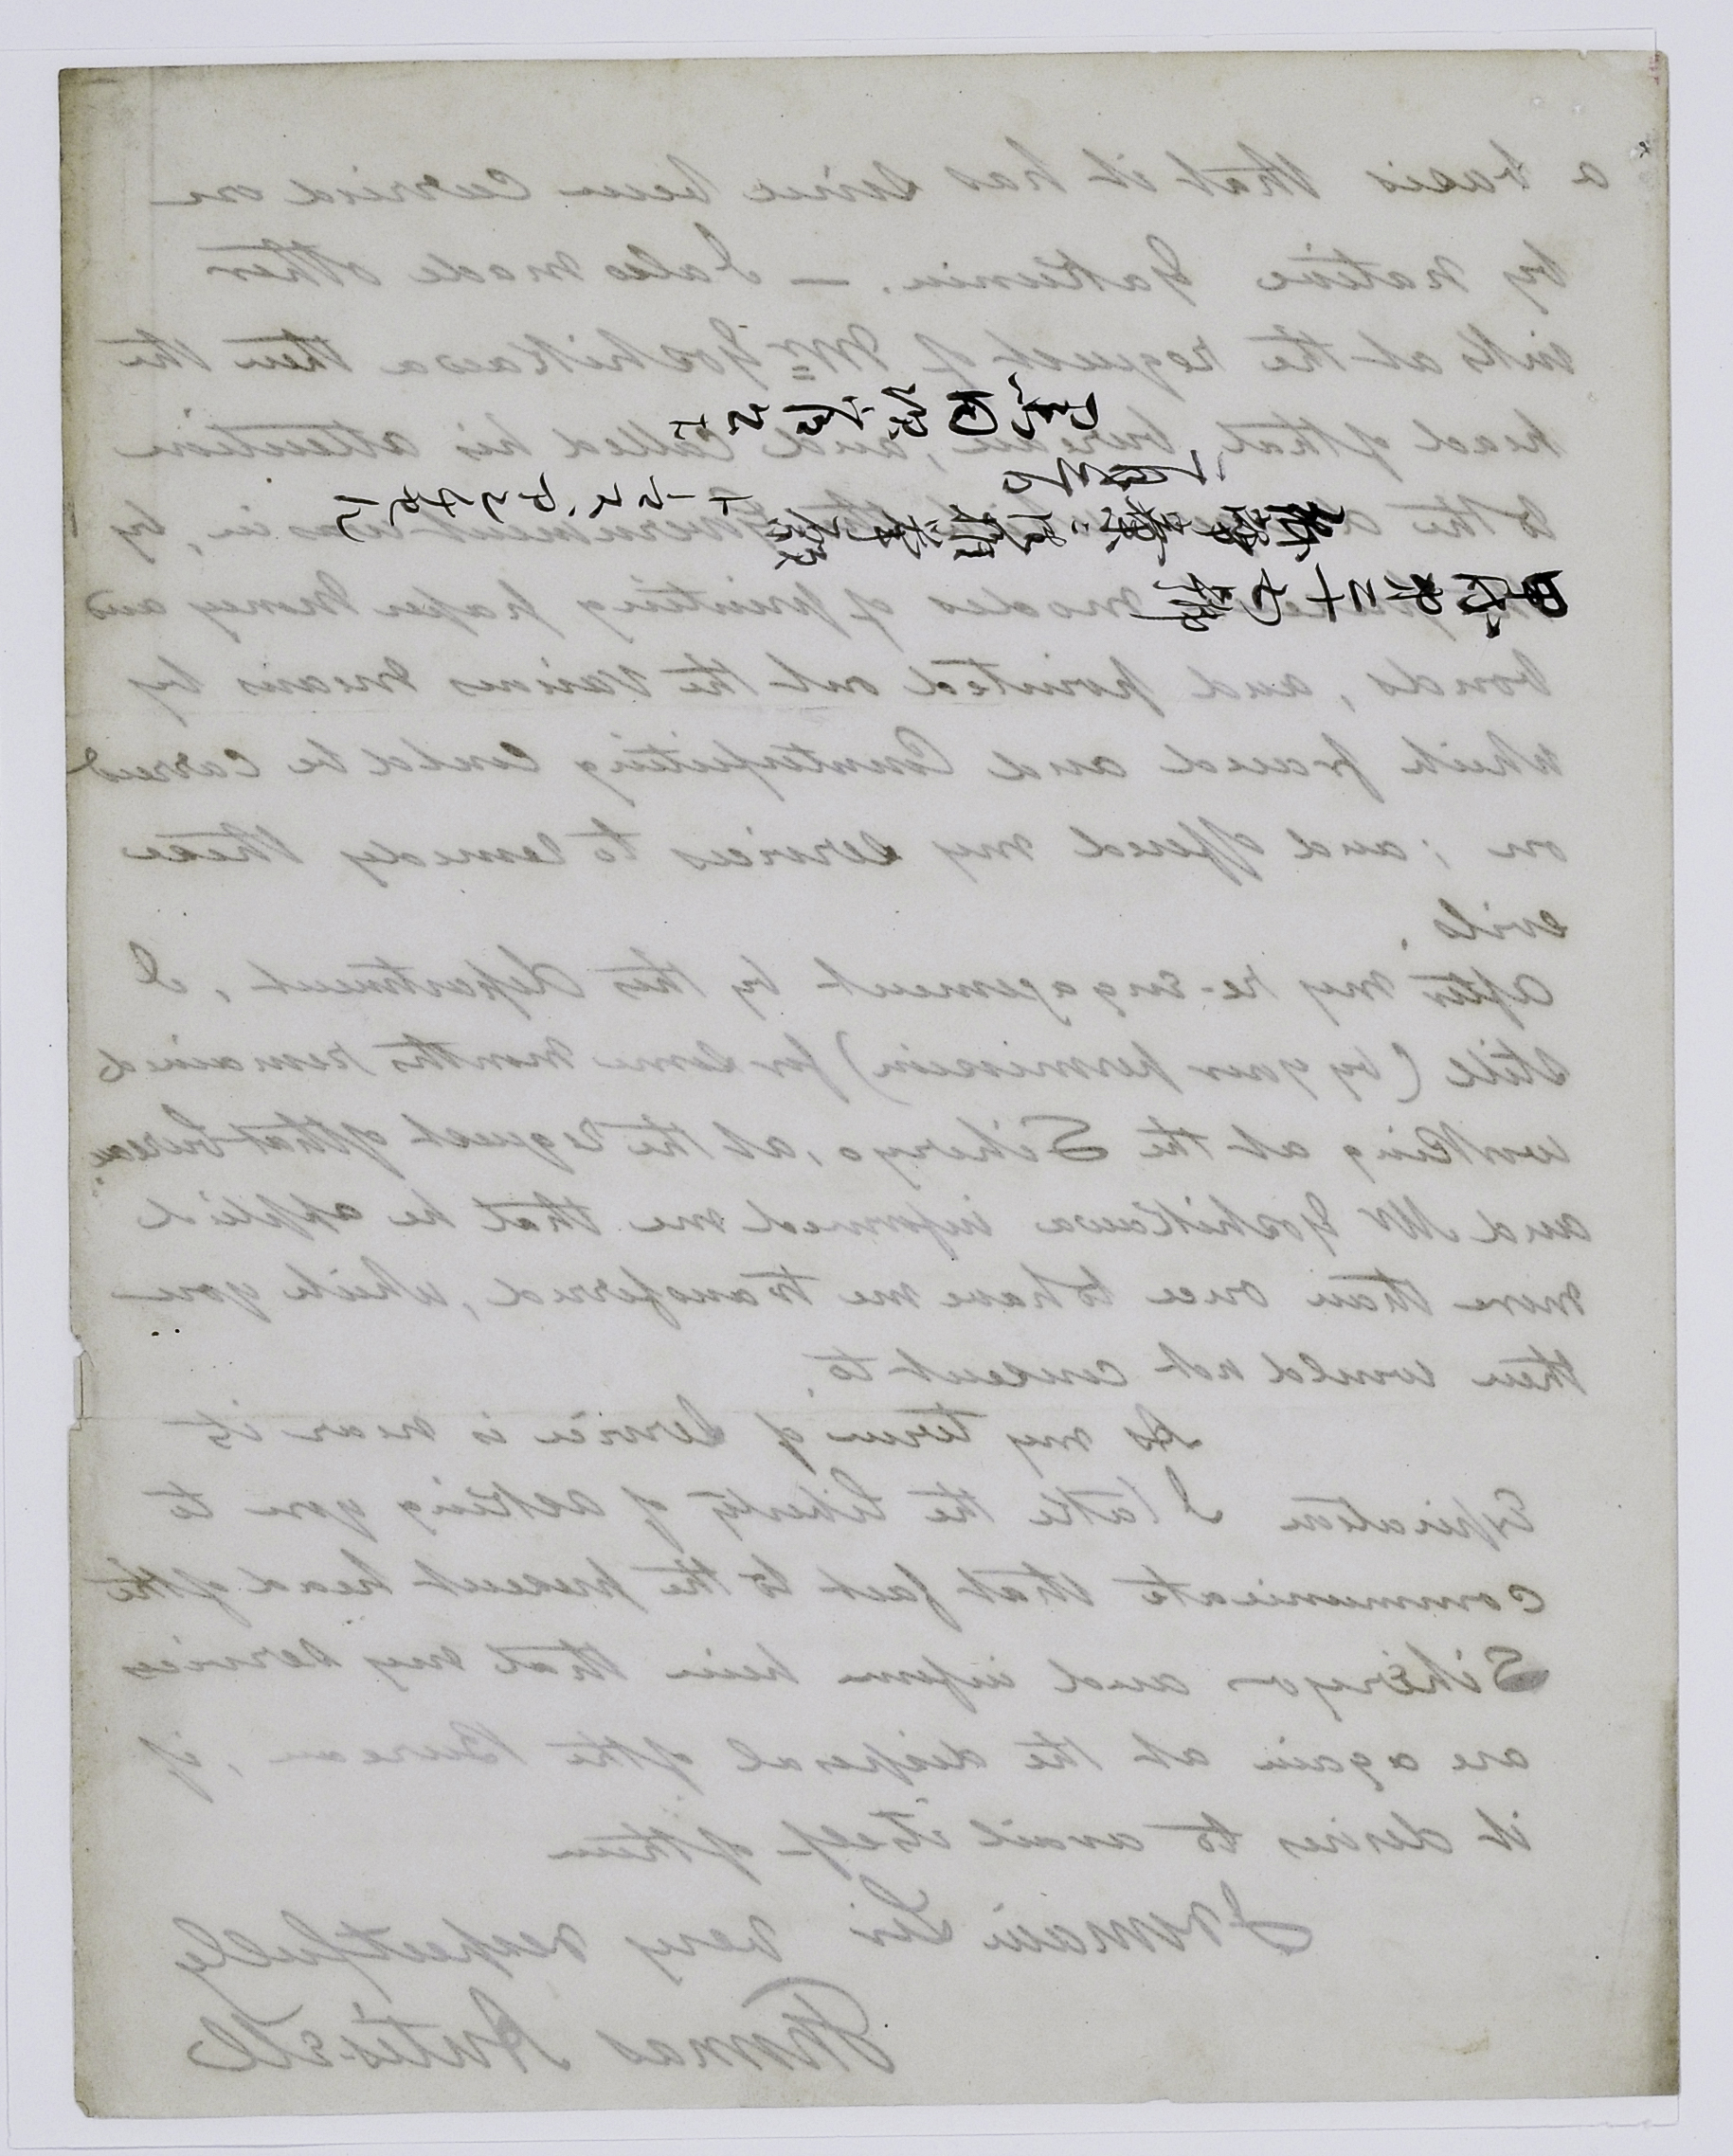 a basis that it has since been carried on
by native Yakunin. — I also made other
inks at the request of Mr Yoshikawa then the
head of that bureau, and called his attention
to the Government was in, by
modes of printing paper money and
bonds, and pointed out the various means by
which fraud and Counterfeiting could be carried
on ; and offered my services to remedy these
evils.
After my re-engagement by this department, I
still (by your permission) for some months remained
working at the Siheryo, at the request of that bureau,
and Mr Yoshikawa informed me that he applied
more than once to have me transferred, which you
then would not consent to.
As my term of service is near its
Expiration I take the liberty of asking you to
communicate that fact to the present head of the
Siheryo and inform him that my services
are again at the disposal of the Bureau, if
it desires to avail itself of them
I remain Sir very respectfully
Thomas Antisell